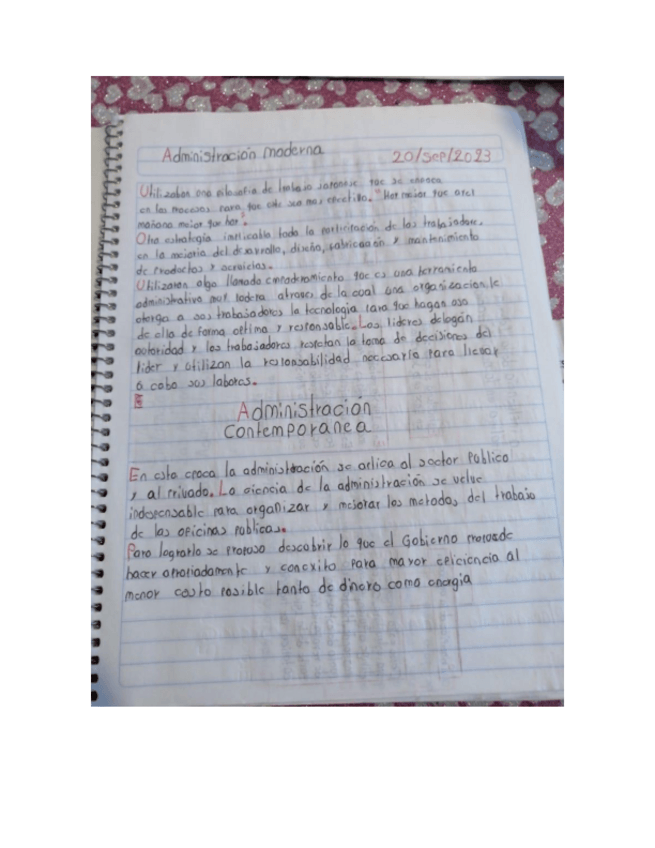 Administración moderna 20/sep/2023
Utilizaban una filosofía de trabajo japonesa que se enfoca
en los procesos para que este sea mas efectivo. "Hoy mejor que ayer
mañana mejor que hoy".
Otra estrategia implicaba toda la participación de los trabajadores
en la mejoria del desarrollo, diseño, fabricación y mantenimiento
de productos y servicios.
Utilizaron algo llamado empoderamiento que es una herramienta
administrativa muy podera atraves de la cual una organizacion le
otorga a sus trabajadores la tecnologia para que hagan uso
de ella de forma optima y responsable. Los lideres delegan
autoridad y los trabajadores respetan la toma de decisiones del
lider y utilizan la responsabilidad necesaria para llevar
a cabo sus labores.
Administración
Contemporanea
En esta epoca la administración se aplica al sector Público
y al privado. La ciencia de la administración se velve
indespensable para organizar y mejorar los metodos del trabajo
de las oficinas publicas.
Para lograrlo se propuso descubrir lo que el Gobierno puede
hacer apropiadamente y conexito para mayor eficiencia al
menor costo posible tanto de dinero como energia